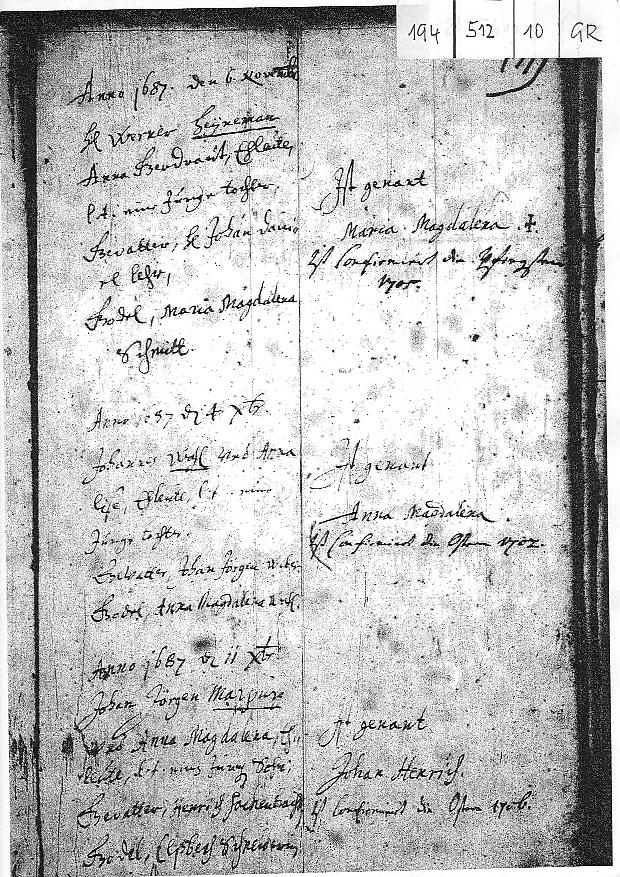 194 512 10 GR
Anno 1687. den 6 Novemb
H Werner Heyneman
Anna Gerdraut, Eheleute,
b.t. eine Junge tochter,
Gevatter, H Johan Dani
el Lehr,
Godel, Maria Magdalena
Schmitt.
Ist genant
Maria Magdalena
Ist Confirmirt die Pfingsten
1701.
Anno 1687 d 4 Xbr
Johannes und Anna
Lise, Eheleute, b.t. eine
Junge tochter.
Gevatter, Johan Jörgen
Godel, Anna Magdalena
Ist genant
Anna Magdalena
Ist Confirmirt die Ostern 1702.
Anno 1687 d 11 Xbr
Johan Jörgen Marpurg
und Anna Magdalena, Eh
leute, b.t. einen jung Sohn,
Gevatter, Henrich
Godel, Elsbeth
Ist genant
Johan Henrich.
Ist Confirmirt die Ostern 1706.